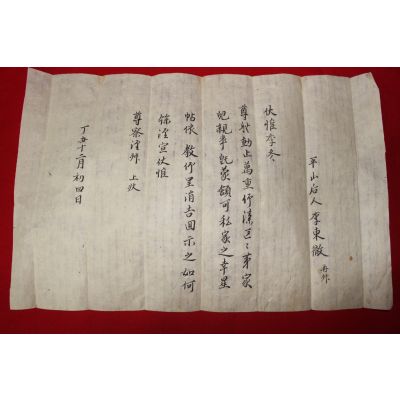 山后人 李東 再拜
伏惟季冬
尊體動止萬重仰溱區〻第家
兒親事旣蒙頷可私家之幸星
帖依 敎仰呈涓吉回示之如何
餘 宣伏惟
尊察謹拜 上狀
丁丑十二月初四日